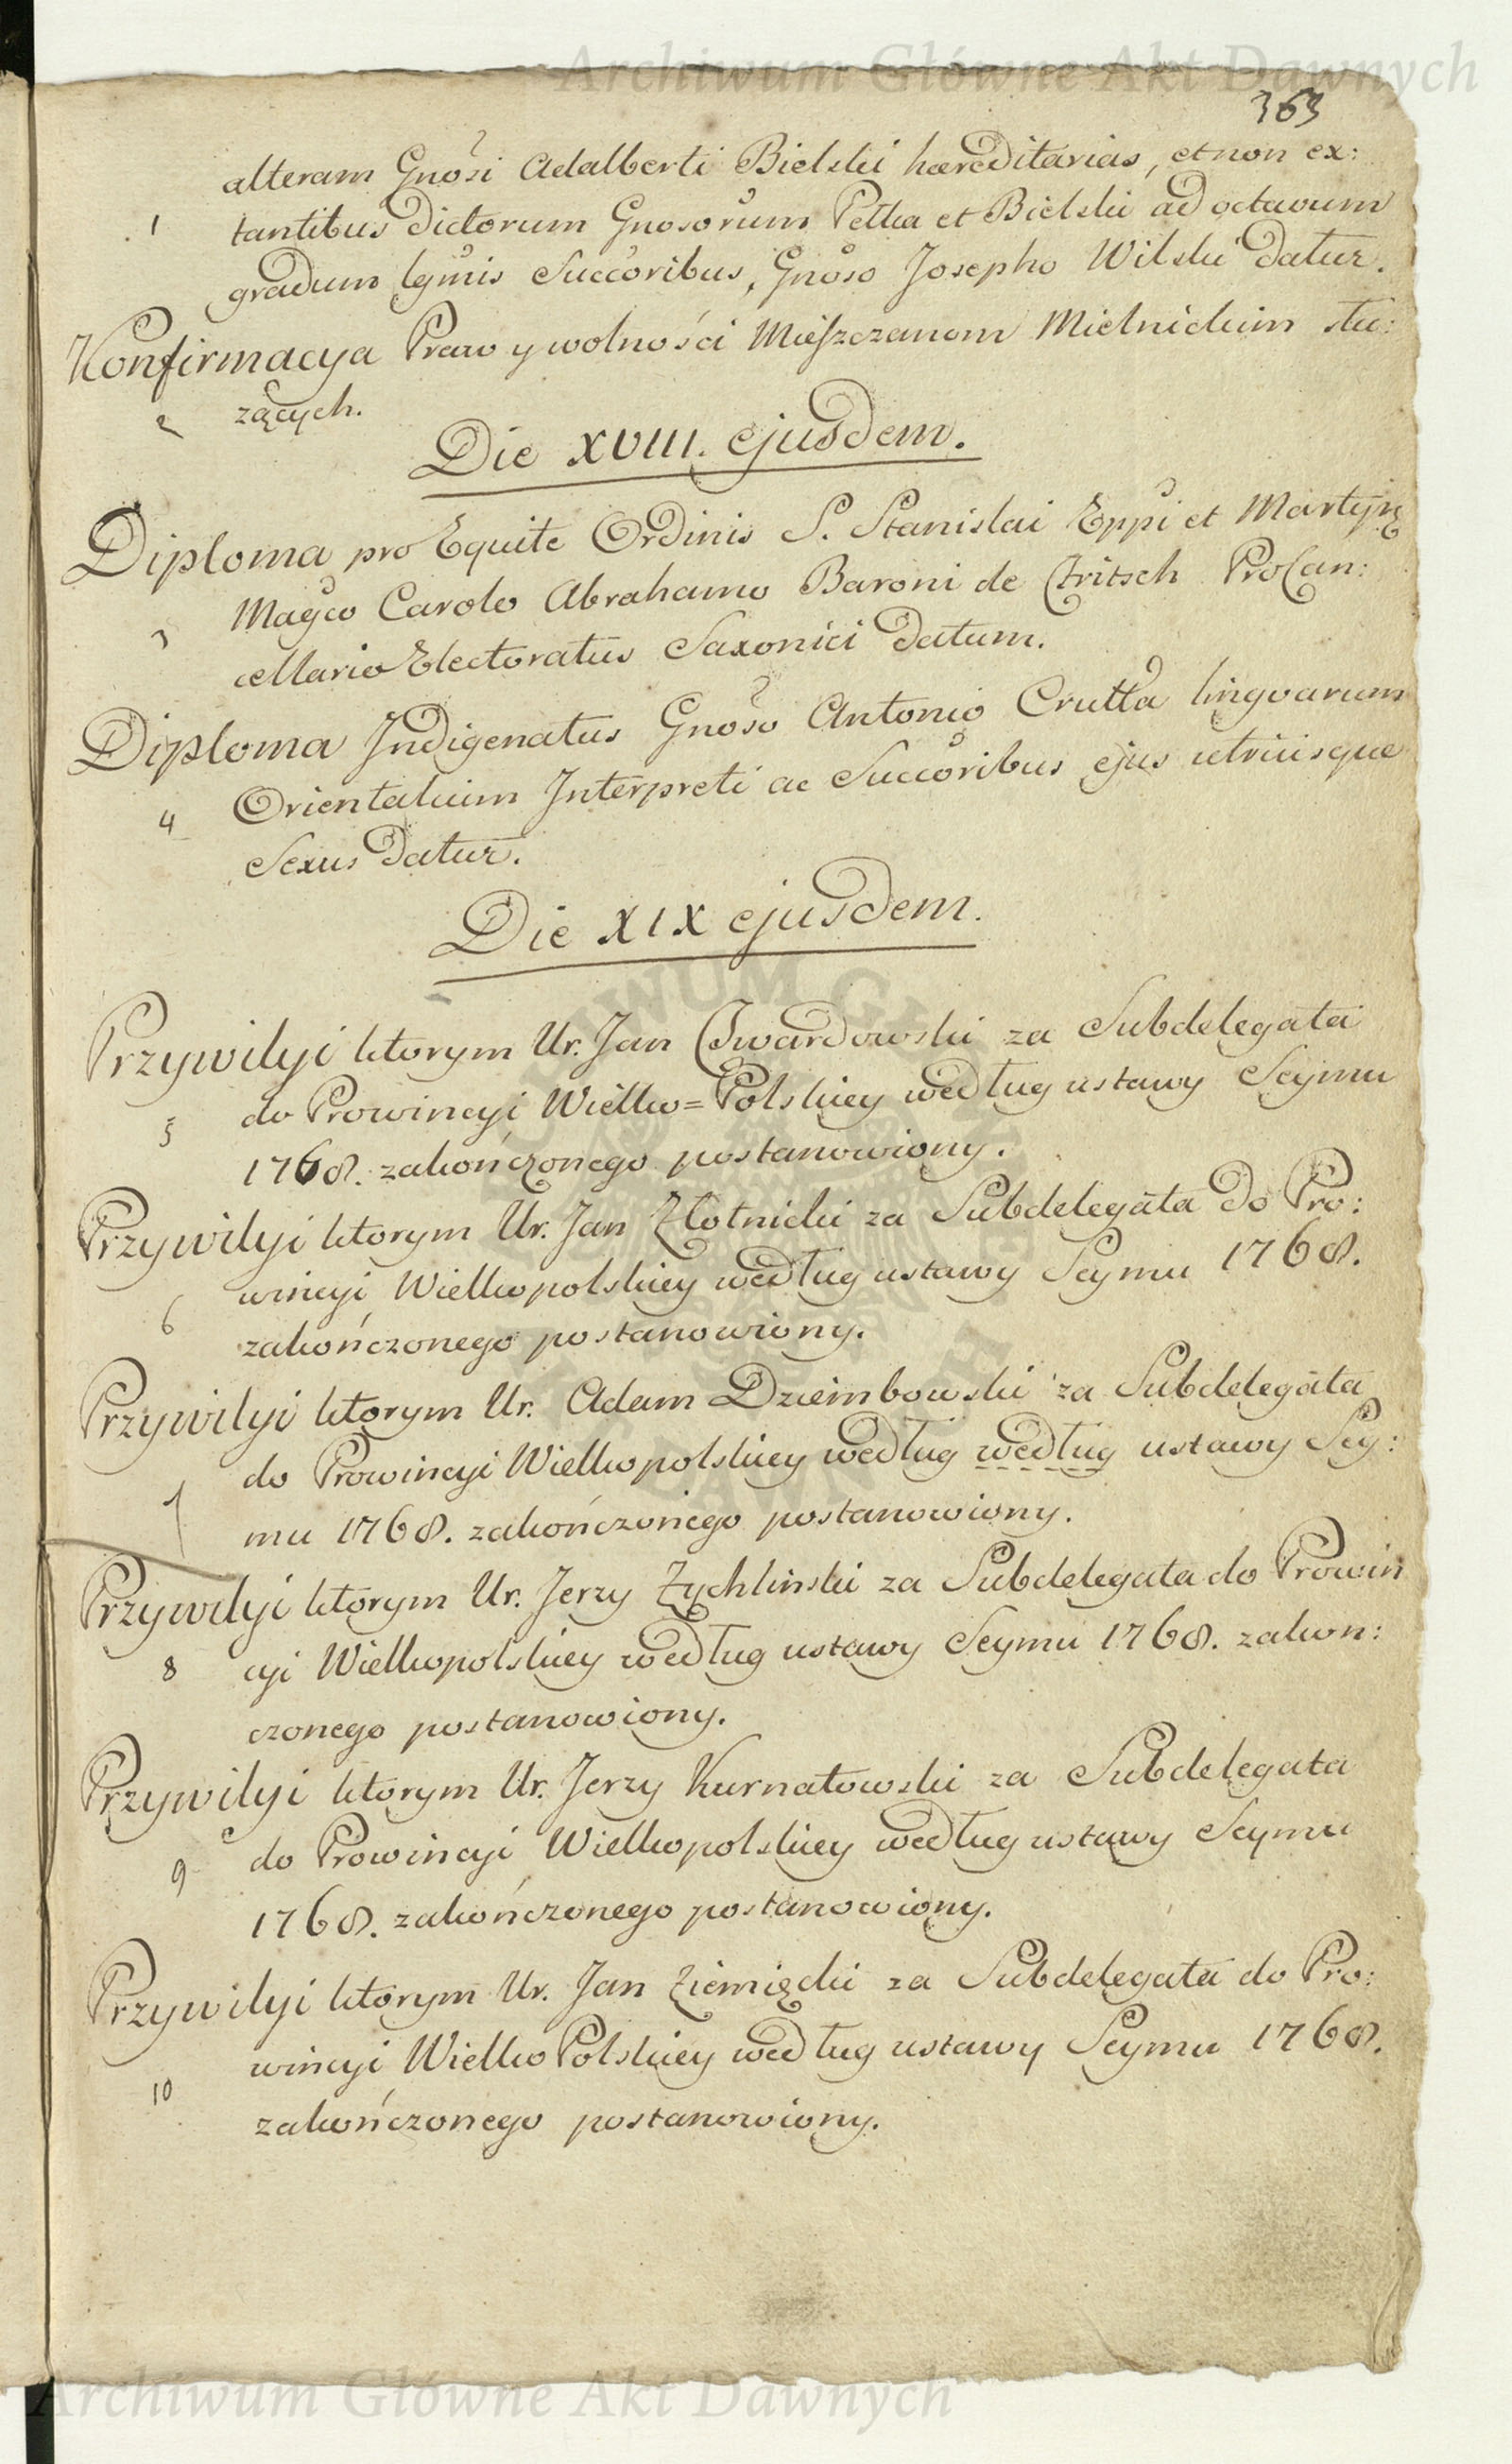 Archiwum Główne Akt Dawnych
363
alteram Gnosi Adalberti Bielski hæreditarias, et non ex:
1 tantibus dictorum Gnosorum Pełka et Bielski ad octavum
gradum lgmis Succoribus, Gnoso Josepho Wilski datur.
Konfirmacya Praw y wolności Mieszczanom Mielnickim słu:
2 zących.
Die XVIII. ejusdem.
Diploma pro Equite Ordinis S. Stanislai Eppi et Martyris
3 Magco Carolo Abrahamo Baroni de Fritsch ProCan:
cellario Electoratus Saxonici datum.
Diploma Indigenatus Gnoso Antonio Crutta lingvarum
4 Orientalium Interpreti ac Succoribus ejus utriusque
Sexus datur.
Die XIX ejusdem.
Przywilyi ktorym Ur. Jan Twardowski za Subdelegata
5 do Prowincyi Wielko=Polskiey według ustawy Seymu
1768. zakończonego postanowiony.
Przywilyi ktorym Ur. Jan Złotnicki za Subdelegata do Pro:
6 wincyi Wielkopolskiey według ustawy Seymu 1768.
zakończonego postanowiony.
Przywilyi ktorym Ur. Adam Dziembowski za Subdelegata
7 do Prowincyi Wielkopolskiey według według ustawy Sey:
mu 1768. zakończonego postanowiony.
Przywilyi ktorym Ur. Jerzy Zychliński za Subdelegata do Prowin
8 cyi Wielkopolskiey według ustawy Seymu 1768. zakon:
czonego postanowiony.
Przywilyi ktorym Ur. Jerzy Kurnatowski za Subdelegata
9 do Prowincyi Wielkopolskiey według ustawy Seymu
1768. zakończonego postanowiony.
Przywilyi ktorym Ur. Jan Ziemięcki za Subdelegata do Pro:
10 wincyi WielkoPolskiey według ustawy Seymu 1768.
zakończonego postanowiony.
Archiwum Główne Akt Dawnych